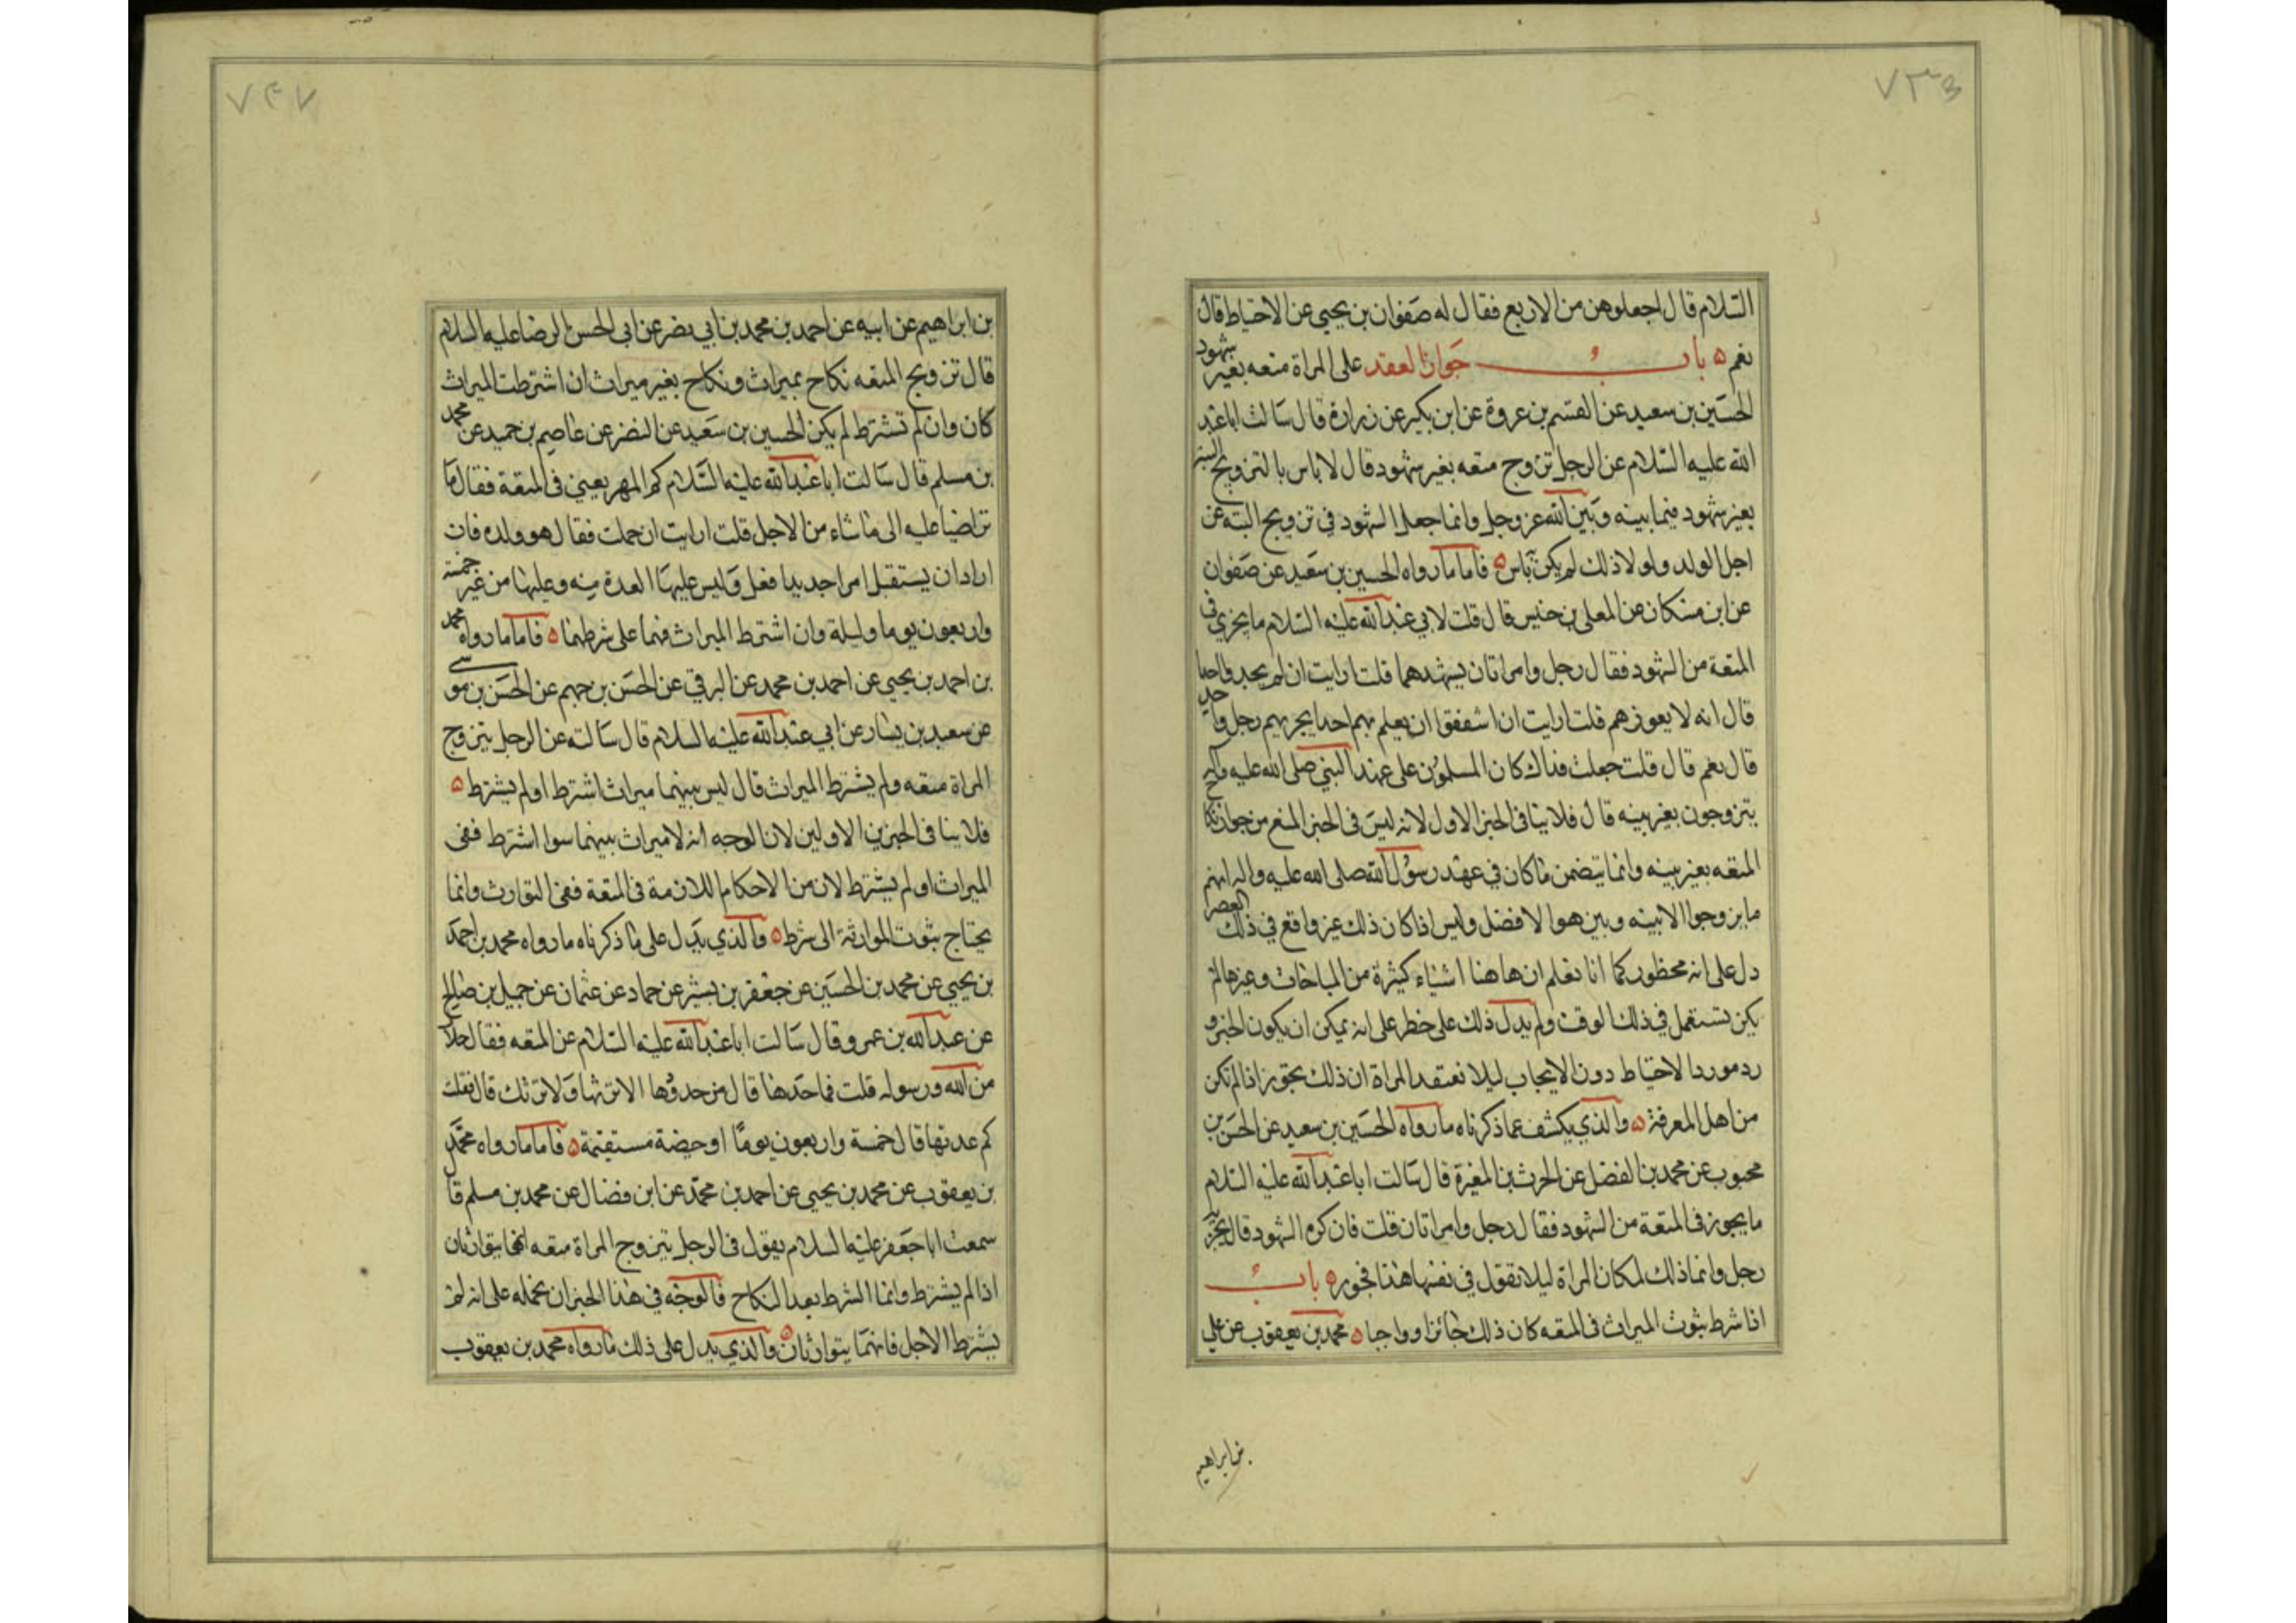 ٧٣٥
السّلام قال اجعلوهن من الاربع فقال له صفوان بن يحيى عن الاحتياط قال
نعم ٥ باب جواز العقد على المراة متعه بغير شهود
الحسين بن سعيد عن القسم بن عروة عن ابن بكير عن زرارة قال سالت ابا عبد
الله عليه السّلام عن الرجل تزوج متعه بغير شهود قال لا باس بالتزويج البتة
بغير شهود فيما بينه وبين الله عز وجل وانما جعل الشهود في تزويج البته من
اجل الولد ولولا ذلك لم يكن باس ٥ فاما ما رواه الحسين بن سعيد عن صفوان
عن ابن مسكان عن المعلى بن خنيس قال قلت لابي عبد الله عليه السّلام ما يجزي في
المتعة من الشهود فقال رجل وامراتان يشهدهما قلت ارايت ان لم يجد واحدا
قال انه لا يعوزهم قلت ارايت ان اشفقوا ان يعلم بهم احد ايجزيهم رجل واحد
قال نعم قال قلت جعلت فداك كان المسلمون على عهد النبي صلى الله عليه واله
يتزوجون بغير بينه قال فلا ينافي الخبر الاول لانه ليس في الخبر المنع من جواز نكاح
المتعه بغير بينه وانما يتضمن ما كان في عهد رسول الله صلى الله عليه واله انهم
ما يزوجوا الا ببينه وبين هوا لا فضل وليس اذا كان ذلك غير واقع في ذلك العصر
دل على انه محظور كما انا نعلم ان هاهنا اشياء كثيرة من المباحات وغيرها لم
يكن تستعمل في ذلك الوقت ولم يدل ذلك على حظر على انه يمكن ان يكون الخبر و
رد مورد الاحتياط دون الايجاب ليلا تعتقد المراة ان ذلك بجوز اذا لم تكن
من اهل المعرفة ٥ والذي يكشف عما ذكرناه ما رواه الحسين بن سعيد عن الحسن بن
محبوب عن محمد بن الفضل عن الحرث بن المغيرة قال سالت ابا عبد الله عليه السّلام
ما يجوز في المتعة من الشهود فقال رجل وامراتان قلت فان كره الشهود قال يجزيه
رجل وانما ذلك لمكان المراة ليلا تقول في نفسها هذا فجور ٥ باب
اذا شرط ثبوت الميراث في المتعه كان ذلك جائزا وواجبا ٥ محمد بن يعقوب عن علي
بن ابراهيم
بن ابراهيم عن ابيه عن احمد بن محمد بن ابي نصر عن ابي الحسن الرضا عليه السلام
قال تزويج المتعه نكاح بميراث ونكاح بغير ميراث ان اشترطت الميراث
كان وان لم تشترط لم يكن الحسين بن سعيد عن النضر عن عاصم بن حميد عن محمد
بن مسلم قال سالت ابا عبد الله عليه السّلام كم المهر يعني في المتعة فقال ما
تراضيا عليه الى ما شاء من الاجل قلت ارايت ان حملت فقال هو ولده فان
اراد ان يستقبل امرا جديدا فعل وليس عليها العدة منه وعليها من غيره خمسة
واربعون يوما وليلة وان اشترط الميراث فهما على شرطهما ٥ فاما ما رواه محمد
بن احمد بن يحيى عن احمد بن محمد عن البرقي عن الحسن بن جهم عن الحسن بن موسى
عن سعيد بن يسار عن ابي عبد الله عليه السلام قال سالته عن الرجل يتزوج
المراة متعه ولم يشترط الميراث قال ليس بينهما ميراث اشترط اولم يشترط ٥
فلا ينافي الخبرين الاولين لان الوجه انه لا ميراث بينهما سوا اشترط نفى
الميراث اولم يشترط لان من الاحكام اللازمة في المتعة نفى التوارث وانما
يحتاج ثبوت الموارثة الى شرط ٥ والذي يدل على ما ذكرناه ما رواه محمد بن احمد
بن يحيى عن محمد بن الحسين عن جعفر بن بشير عن حماد عن عثمان عن جميل بن صالح
عن عبد الله بن عمرو قال سالت ابا عبد الله عليه السّلام عن المتعه فقال حلال
من الله ورسوله قلت فما حدها قال من حدودها الا ترثها ولا ترثك قال فقلت
كم عدتها قال خمسة واربعون يوما او حيضة مستقيمة ٥ فاما ما رواه محمد
بن يعقوب عن محمد بن يحيى عن احمد بن محمد عن ابن فضال عن محمد بن مسلم قا
سمعت ابا جعفر عليه السلام يقول في الرجل يتزوج المراة متعه انهما يتوارثان
اذا لم يشترط وانما الشرط بعد النكاح فالوجه في هذا الخبر ان نحمله على انه لم
يشترط الاجل فانهما يتوارثان ٥ والذي يدل على ذلك ما رواه محمد بن يعقوب